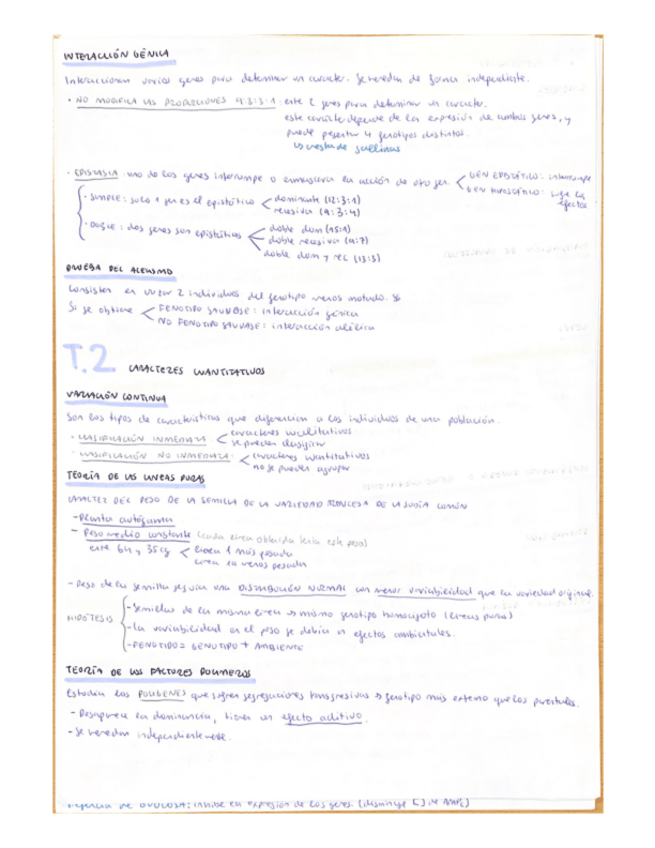 INTERACCIÓN GÉNICA
Interaccionan varios genes para determinar un caracter. Se heredan de forma independiente.
· NO MODIFICA LAS PROPORCIONES 9:3:3:1: entre 2 genes para determinar un caracter.
este carácter depende de la expresión de ambos genes, y
puede presentar 4 fenotipos distintos.
↳ cresta de gallinas
· EPISTASIA: uno de los genes interrumpe o enmascara la acción de otro gen. < GEN EPISTÁTICO: interrumpe
GEN HIPOSTÁTICO: sufre los efectos
· SIMPLE: solo 1 gen es el epistático < dominante (12:3:1)
recesiva (9:3:4)
· DOBLE: dos genes son epistáticos < doble dom (15:1)
doble recesiva (9:7)
doble dom y rec (13:3)
PRUEBA DEL ALELISMO
Consiste en cruzar 2 individuos del fenotipo menos mutado. Si
Si se obtiene < FENOTIPO SALVAJE: interacción génica
NO FENOTIPO SALVAJE: interacción alélica
T.2 CARACTERES CUANTITATIVOS
VARIACIÓN CONTINUA
Son los tipos de características que diferencian a los individuos de una población.
· CLASIFICACIÓN INMEDIATA < caracteres cualitativos
se pueden clasificar
· CLASIFICACIÓN NO INMEDIATA: < caracteres cuantitativos
no se pueden agrupar
TEORÍA DE LAS LÍNEAS PURAS
CARÁCTER DEL PESO DE LA SEMILLA DE LA VARIEDAD PRINCESA DE LA JUDÍA COMÚN
- Planta autógama
- Peso medio constante (cada línea obtenida tenía este peso)
entre 64 y 35cg < línea 1 más pesada
línea menos pesada
- Peso de la semilla seguía una DISTRIBUCIÓN NORMAL con menor variabilidad que la variedad original.
HIPÓTESIS
- Semillas de la misma línea ↪ mismo genotipo homocigoto (líneas puras)
- La variabilidad en el peso se debía a efectos ambientales.
- FENOTIPO = GENOTIPO + AMBIENTE
TEORÍA DE LOS FACTORES POLÍMEROS
Estudia los POLIGENES que sufren segregaciones transgresivas ↪ fenotipo más extremo que los parentales.
- Desaparece la dominancia, tienen un efecto aditivo.
- Se heredan independientemente.
GLUCOSA: inhibe la expresión de los genes. (disminuye [ ] de AMPc)